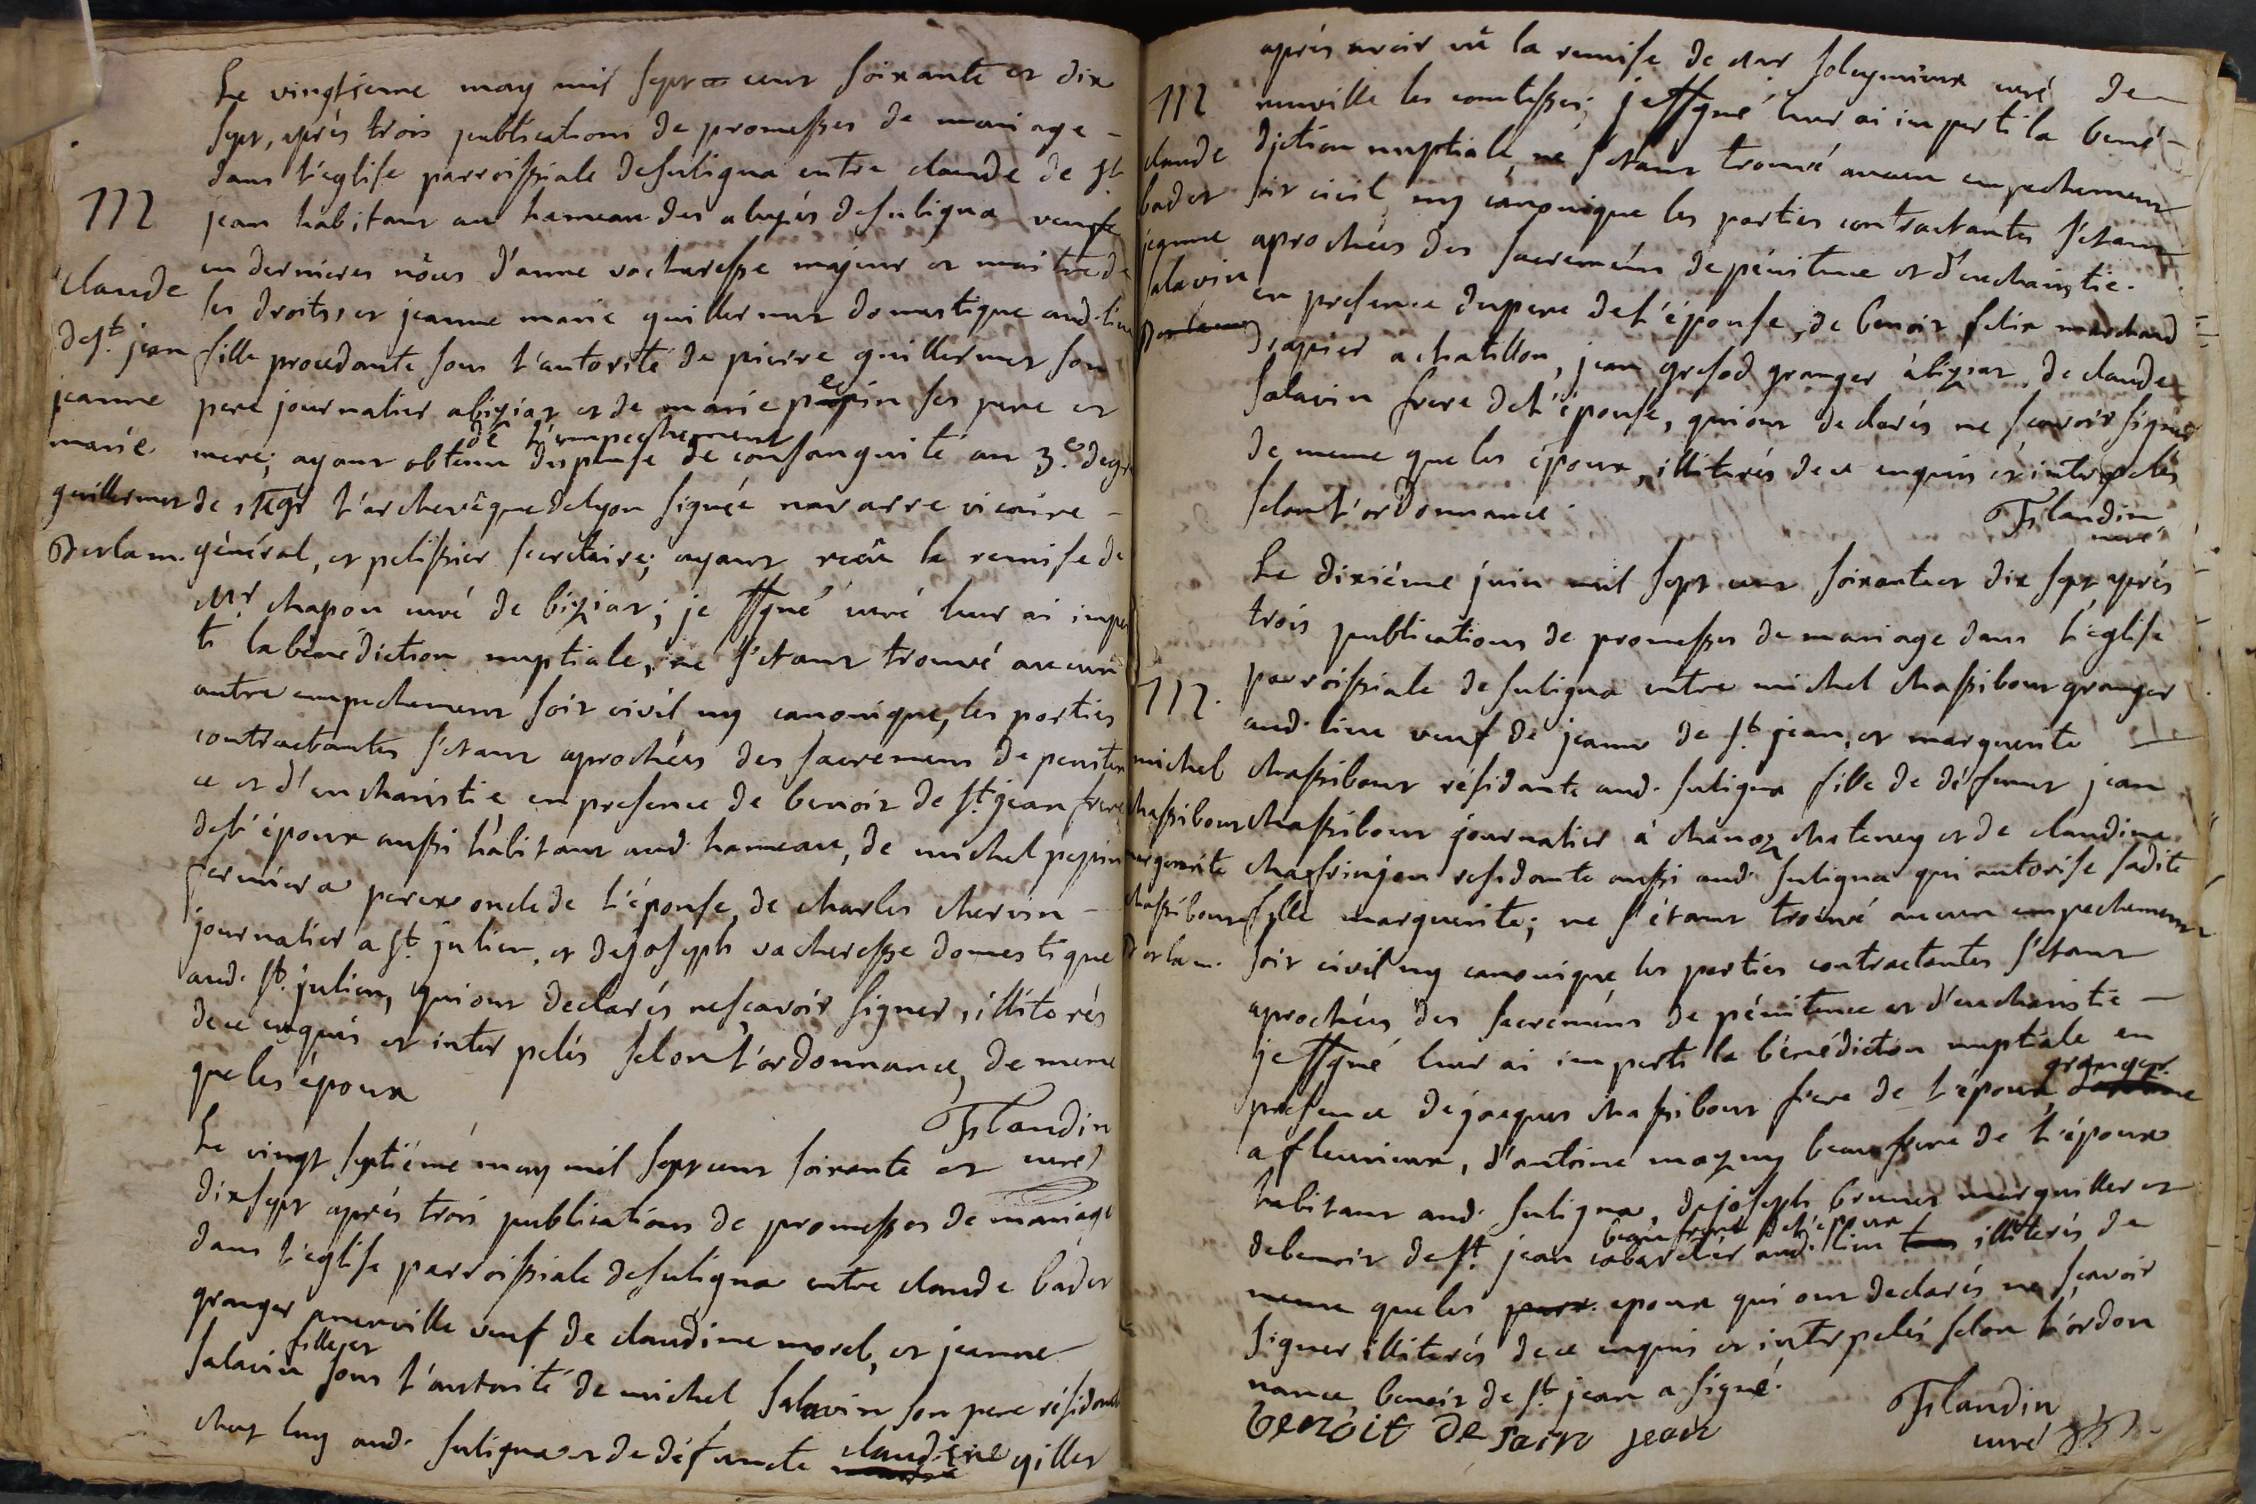 Le vingtieme may mil sept cent soixante et dix
sept, après trois publications de promesses de mariage -
dans l'eglise parroissiale de suligna entre claude de st
jean habitant au hameau des alugés de suligna veuf
en dernieres nôces d'anne vacheresse majeur et maitre de
ses droits, et jeanne marie guillermet domestique aud. lieu
fille procedante sous l'autorité de pierre guillermet son
pere journalier abiziat et de marie pepin ses pere et
mere; ayant obtenu dispense de l'empechement de consanguité au 3.e degré
de Mgr l'archevêque de lyon signée navarre vicaire -
général, et pelissier secretaire; ayant reçu la remise de
Mr chapon curé de biziat; je ssgné curé leur ai impar
ti la bénédiction nuptiale, ne s'etant trouvé aucun
autre empechement soit civil ny canonique, les parties
contractantes s'etant aprochées des sacremens de peniten
ce et d'eucharistie, en presence de benoit de st jean frere
de l'époux aussi habitant aud. hameau, de michel pepin
fermier a perex oncle de l'épouse, de charles chervin -
journalier a st. julien, et de joseph vacheresse domestique
aud. st. julien, qui ont declarés ne scavoir signer, illiterés
de ce enquis et interpelés selon l'ordonnance, de meme
que les époux
Flandin
curé
112
claude
de st. jean
jeanne
marie
guillermet
Le vingt septiémé may mil sept cent soixante et
dix sept après trois publications de promesses de mariage
dans l'eglise parroissiale de suligna entre claude badet
granger aneuville veuf de claudine morel, et jeanne
salavin fille et sous l'autorité de michel salavin son pere résidante
chez luy aud. suligna et de défuncte claudine gillet
après avoir vû la remise de Mr soleymieux curé de
neuville les comtesses; je ssgné leur ai imparti la bené -
diction nuptiale, ne s'etant trouvé aucun empechement
soit civil ny canonique les parties contractantes s'etant
aprochées des sacreméns de pénitence et d'eucharistie.
en presence du pere de l'épouse, de benoit felix marchand
drapier a chatillon, jean grosod granger àbiziat, de claude
salavin frere de l'épouse, qui ont declarés ne scavoir signer
de meme que les époux, illiterés de ce enquis et interpelés
selon l'ordonnance.
Flandin
curé
112
claude
badet
jeanne
salavin
Le dixiéme juin mil sept cent soixante et dix sept après
trois publications de promesses de mariage dans l'eglise
parroissiale de suligna entre michel chassibout granger
aud. lieu veuf de jeanne de st. jean, et marguerite
chassibout résidante aud. suligna fille de défunt jean
chassibout journalier à chanoz chateney et de claudine
chaffrinjon residante aussi aud. suligna qui autorise sadite
fille marguerite; ne s'étant trouvé aucun empechement
soit civil ny canonique les parties contractantes s'etant
aprochées des sacreméns de pénitence et d'eucharistie -
je ssgné leur ai imparti la bénédiction nuptiale en
presence de jacques chassibout frere de l'époux, granger
a fleurieux, d'antoine mazuy beaufrere de l'époux
habitant aud. suligna, de joseph brunet marguiller et
de benoit de st. jean cabaretier aud. lieu beaufrere de l'époux illiterés de
meme que les epoux qui ont declarés ne scavoir
signer illiterés de ce enquis et interpelés selon l'ordon
nance, benoit de st. jean a signé.
benoit de sain jean
Flandin
curé
112.
michel
chassibout
marguerite
chassibout